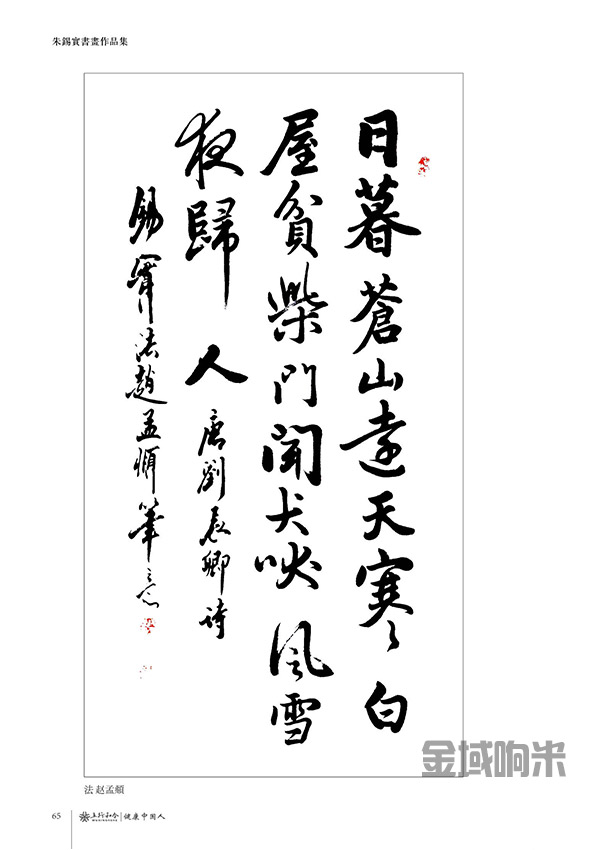 朱錫實書畫作品集
日暮蒼山遠天寒白
屋貧柴門聞犬吠風雪
夜歸人 唐劉長卿詩
錫實法趙孟頫筆意
金域响米
法 赵孟頫
65 上行和合 健康中国人